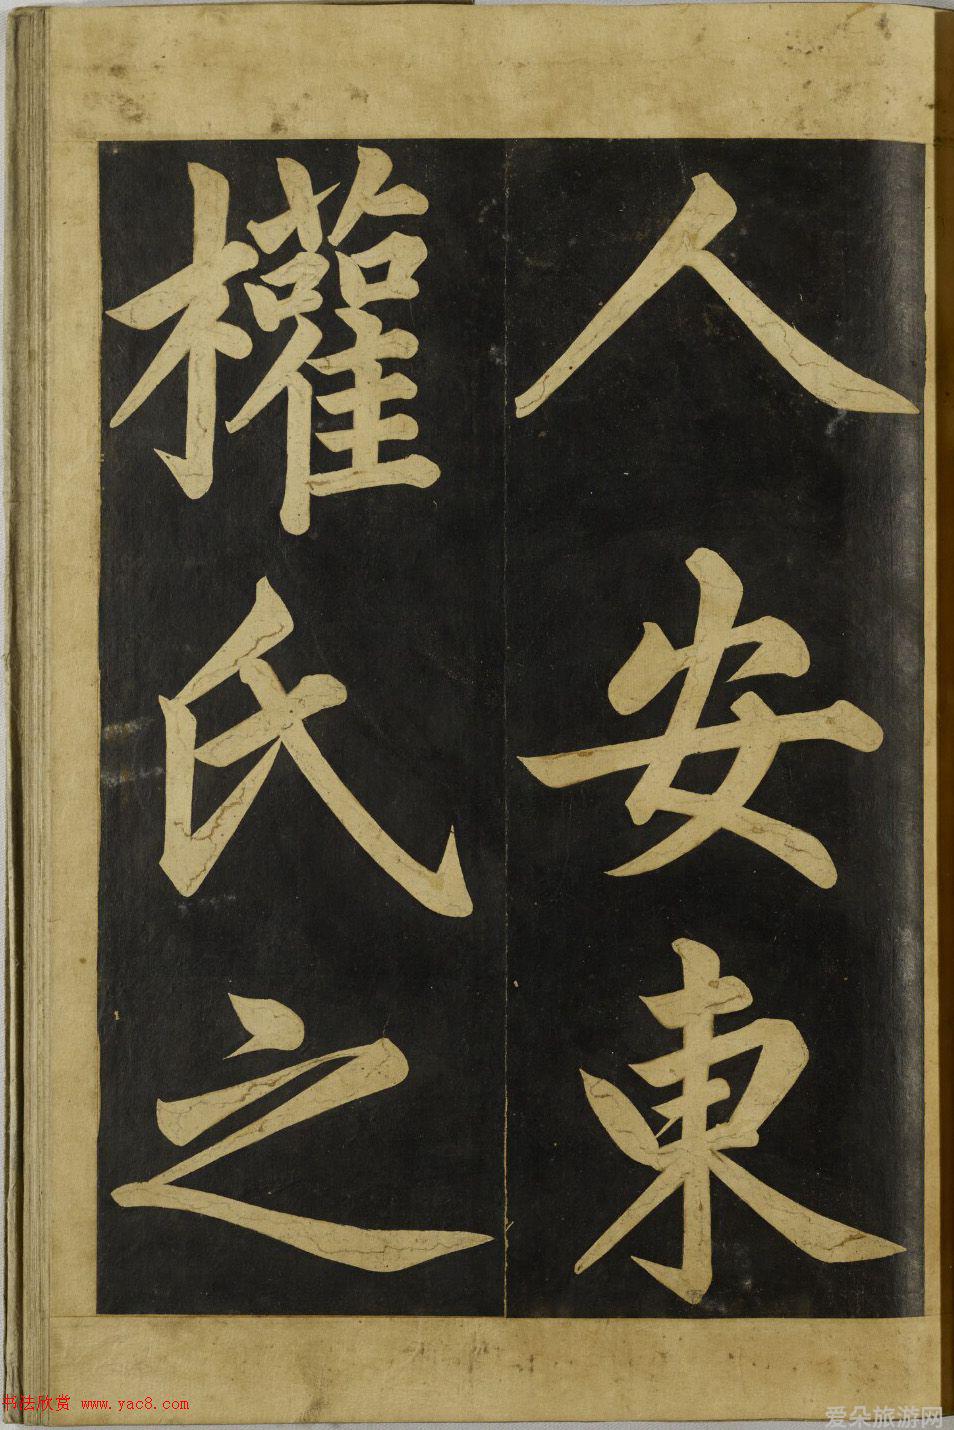 人安東
權氏之
书法欣赏 www.yac8.com
爱朵旅游网